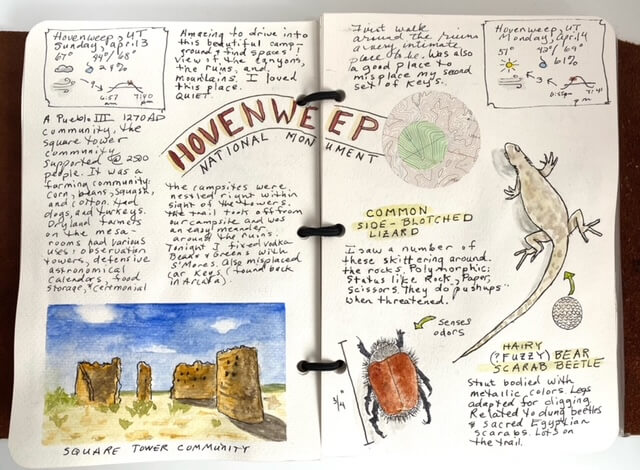 Hovenweep, UT
Sunday, April 3
67° 44°/68°
21%
6:57 am
7:40 pm
Amazing to drive into
this beautiful camp-
ground & find spaces!!
View of the canyons,
the ruins, and
mountains. I loved
this place.
QUIET.
A Pueblo III 1270 AD
community, the
square tower
community
supported @ 2500
people. It was a
farming community:
corn, beans, squash,
and cotton. Had
dogs, and turkeys.
Dryland farmers
on the mesa-
rooms had various
uses: observation
towers, defensive
astronomical
calendars, food
storage, & ceremonial
HOVENWEEP
NATIONAL MONUMENT
The campsites were
nestled right within
sight of the towers.
The trail took off from
our campsite and was
an easy meander
around the ruins.
Tonight I fixed vodka
Beans & Greens with
S'Mores. Also misplaced
car keys (found back
in Arcata).
SQUARE TOWER COMMUNITY
First walk
around the ruins
a very intimate
place to be. Was also
a good place to
misplace my second
set of keys.
Hovenweep, UT
Monday, April 4
57° 43°/69°
61%
7:41
pm
COMMON
SIDE-BLOTCHED
LIZARD
I saw a number of
these skittering around
the rocks. Polymorphic;
Status like Rock, Paper,
Scissors. They do pushups
when threatened.
senses
odors
3/4"
HAIRY
(? FUZZY) BEAR
SCARAB BEETLE
Stout bodied with
metallic colors. Legs
adapted for digging
Related to dung beetles
& sacred Egyptian
scarabs. Lots on
the trail.